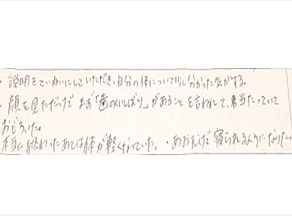 ・説明をていねいにしていただき、自分の体について少し分かった気がする。
・顔を見ただけで まず「歯のくいしばり」があることを言われて、当たっていて
おどろいた。
本当に終わったあとは体が軽くなっていた。・あおむけで 寝られるようになりたい。